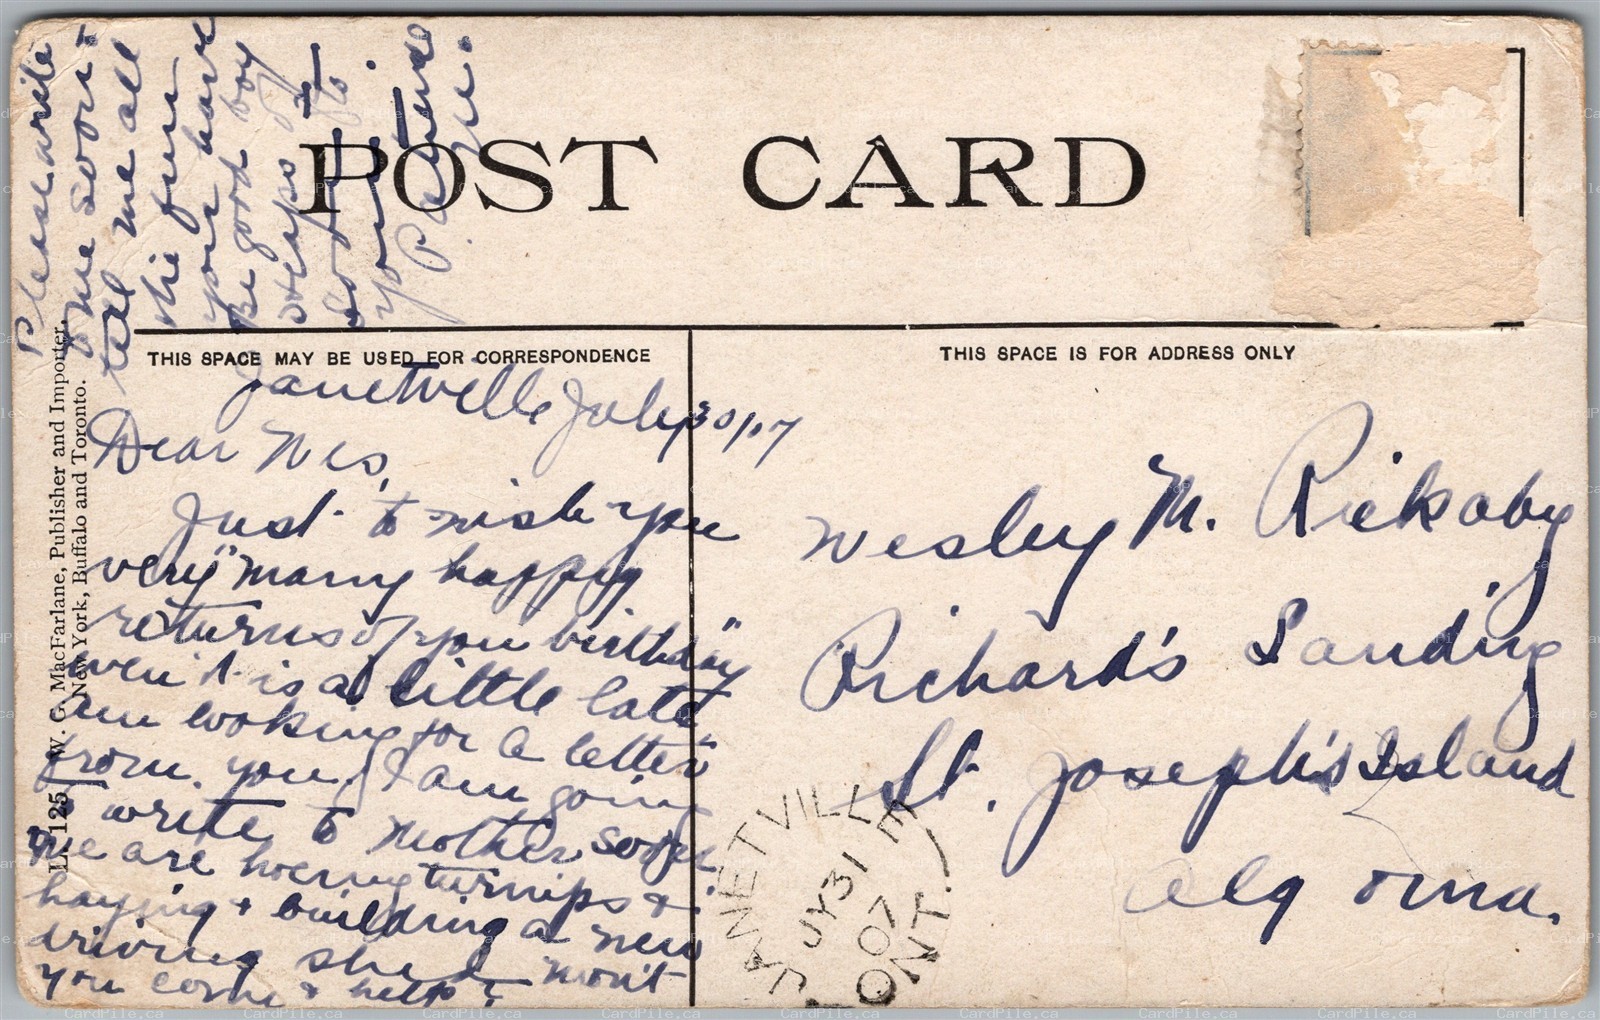 POST CARD
THIS SPACE MAY BE USED FOR CORRESPONDENCE
THIS SPACE IS FOR ADDRESS ONLY
Janetville July 30/07
Dear Wes,
Just to wish you
very "many happy
returns of you birthday"
even it is a little late
am looking for a letter
from you. I am going
to write to Mother soon
we are hoeing turnips &
haying & building a new
driving shed won't
you come & help?
Please write
me soon &
tell me all
the fun
you have
Be good boy
&
Wesley M. Rickaby
Richard's Landing
St. Joseph's Island
Algoma.
JANETVILLE
JY 31
07
ONT.
L. 125 W. G. MacFarlane, Publisher and Importer,
New York, Buffalo and Toronto.
CardPile.ca